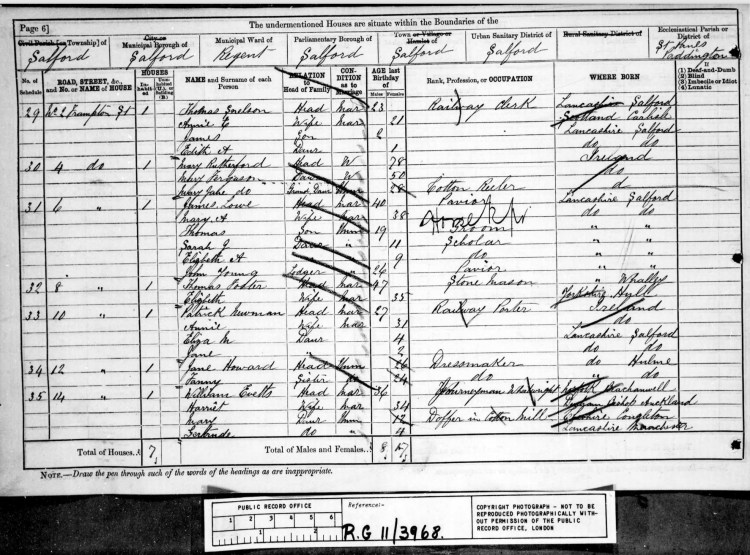 Page 6] The undermentioned Houses are situate within the Boundaries of the
Civil Parish [or Township] of City or Municipal Borough of Municipal Ward of Parliamentary Borough of Town or Village or Hamlet of Urban Sanitary District of Rural Sanitary District of Ecclesiastical Parish or District of
Salford Salford Regent Salford Salford Salford St James Paddington
No. of Schedule ROAD, STREET, &c., and No. or NAME of HOUSE HOUSES Inhabited Uninhabited (U.), or Building (B.) NAME and Surname of each Person RELATION to Head of Family CONDITION as to Marriage AGE last Birthday of Males Females Rank, Profession, or OCCUPATION WHERE BORN (1) Deaf-and-Dumb (2) Blind (3) Imbecile or Idiot (4) Lunatic
29 No 2 Frampton St 1 Thomas Snelson Head Mar 23 Railway Clerk Lancashire Salford
Annie E Wife Mar 21 Scotland Carlisle
James Son 2 Lancashire Salford
Edith A Daur 1 do do
30 4 do 1 Mary Rutherford Head W 78 Ireland
Mary Ferguson Daur W 50 do
Mary Jane do Grand Daur Unm 28 Cotton Reeler do
31 6 " 1 James Lowe Head Mar 40 Pavior Lancashire Salford
Mary A Wife Mar 38 do do
Thomas Son Unm 19 Groom " "
Sarah J Daur " 11 Scholar " "
Elizbeth A " 9 do " "
John Young Lodger " 26 Pavior " "
32 8 " 1 Thomas Foster Head Mar 47 Stone Mason " Whalley
Elizbeth Wife Mar 35 Yorkshire Hull
33 10 " 1 Patrick Newman Head Mar 27 Railway Porter Ireland
Annie Wife Mar 31 do
Eliza M Daur 4 Lancashire Salford
Jane " 2 do do
34 12 " 1 Jane Howard Head Unm 26 Dressmaker do Hulme
Fanny Sister do 24 do " do
35 14 " 1 William Evetts Head Mar 36 Journeyman Wheelwright
Harriet Wife Mar 34
Mary Daur Unm 12 Doffer in Cotton Mill Cheshire Congleton
Gertrude do " 4 Lancashire Manchester
Total of Houses.. 7 Total of Males and Females.. 8 17
NOTE.—Draw the pen through such of the words of the headings as are inappropriate.
PUBLIC RECORD OFFICE
1 2 3 4 5 6
1 2
Reference:-
R.G 11/3968.
COPYRIGHT PHOTOGRAPH - NOT TO BE REPRODUCED PHOTOGRAPHICALLY WITHOUT PERMISSION OF THE PUBLIC RECORD OFFICE, LONDON